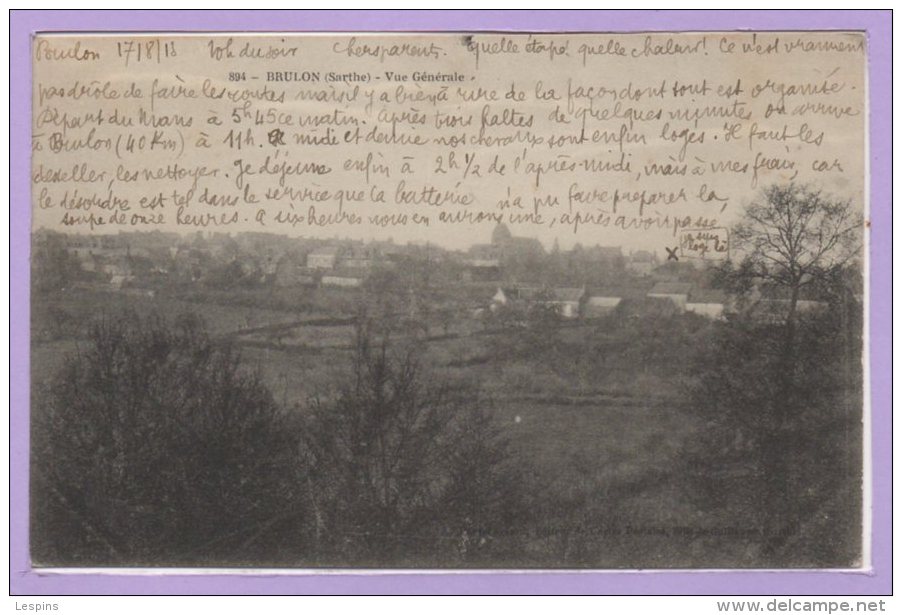 Brulon 17/8/18 10h du soir Chers parents. Quelle étape! quelle chaleur! Ce n'est vraiment
894 - BRULON (Sarthe) - Vue Générale
pas drôle de faire les routes mais il y a bien à rire de la façon dont tout est organisé.
Départ du Mans à 5h45 ce matin. Après trois haltes de quelques minutes on arrive
à Brulon (40 Km) à 11h. A midi et demie nos chevaux sont enfin logés. Il faut les
desseller, les nettoyer. Je déjeune enfin à 2h 1/2 de l'après-midi, mais à mes frais, car
le désordre est tel dans le service que la batterie n'a pu faire préparer la
soupe de onze heures. A six heures nous en aurons une, après avoir passé
je suis
logé là
X
Lespins
www.delcampe.net